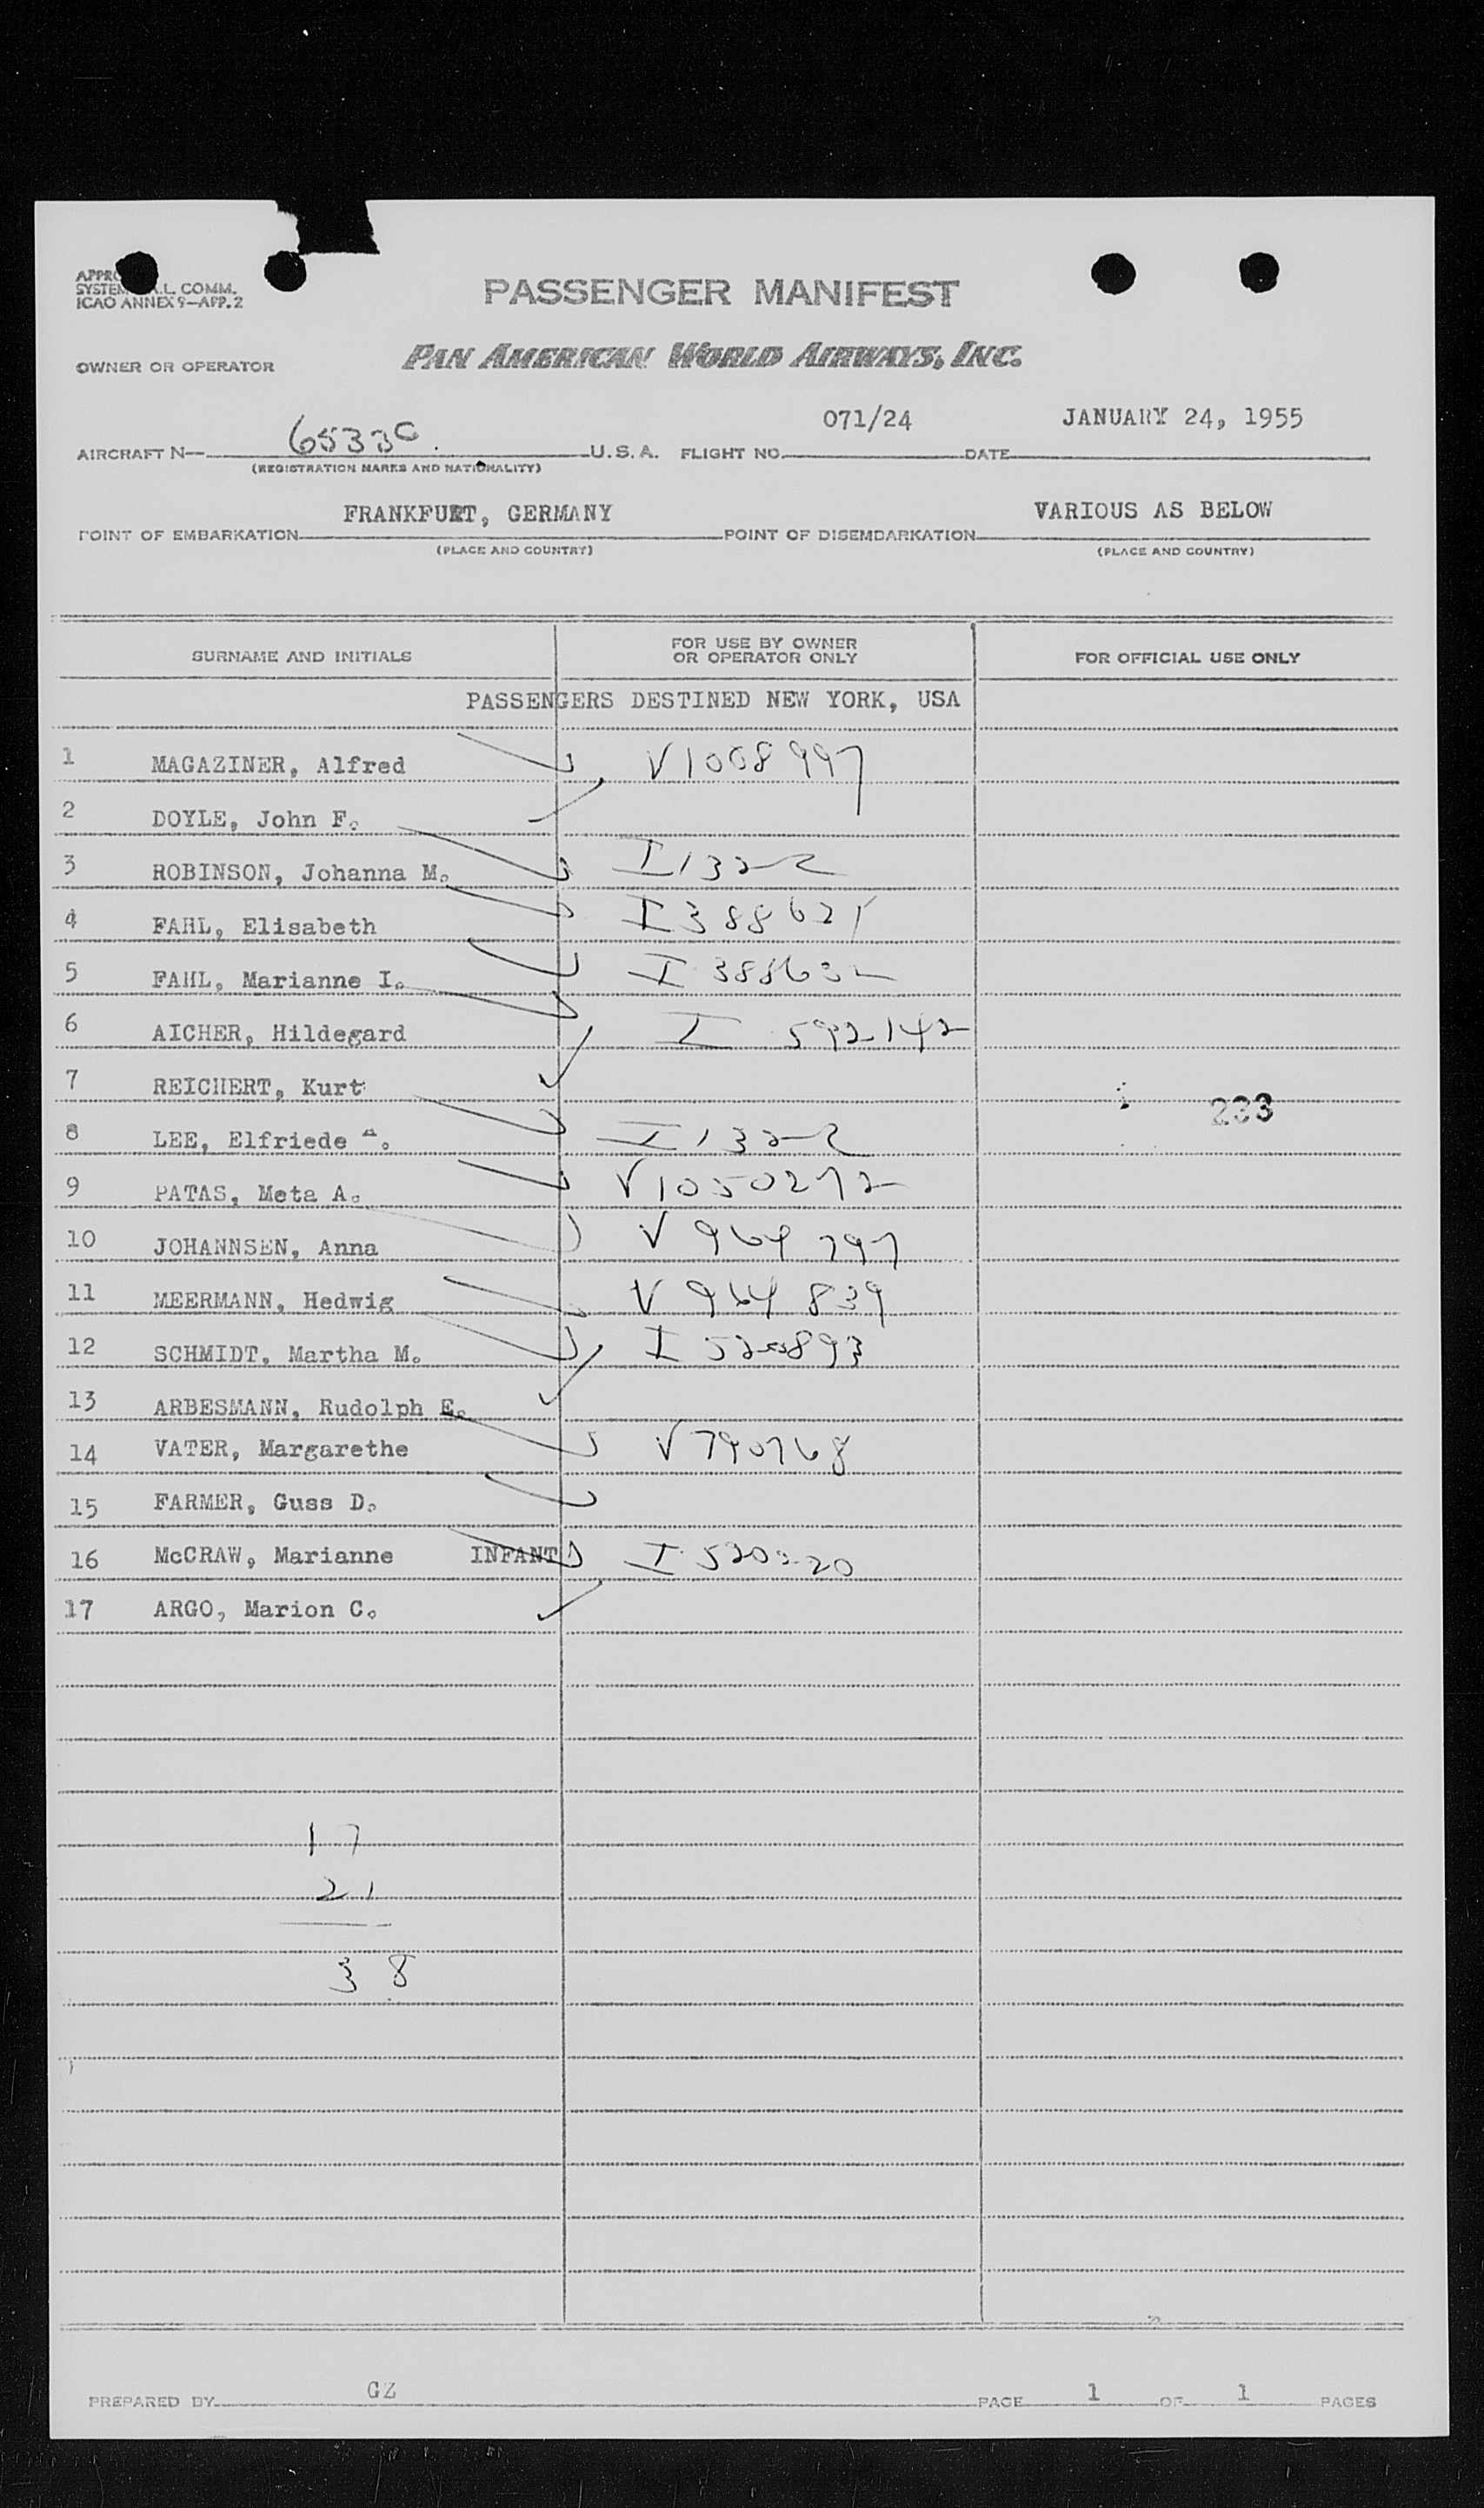 ICAO ANNEX 9—APP. 2
PASSENGER MANIFEST
OWNER OR OPERATOR PAN AMERICAN WORLD AIRWAYS, INC.
AIRCRAFT N— 6533C U.S.A. FLIGHT NO. 071/24 DATE JANUARY 24, 1955
(REGISTRATION MARKS AND NATIONALITY)
POINT OF EMBARKATION FRANKFURT, GERMANY POINT OF DISEMBARKATION VARIOUS AS BELOW
(PLACE AND COUNTRY) (PLACE AND COUNTRY)
SURNAME AND INITIALS FOR USE BY OWNER OR OPERATOR ONLY FOR OFFICIAL USE ONLY
PASSENGERS DESTINED NEW YORK, USA
1 MAGAZINER, Alfred V1008997
2 DOYLE, John F.
3 ROBINSON, Johanna M. I1322
4 FAHL, Elisabeth I388621
5 FAHL, Marianne I. I 388632
6 AICHER, Hildegard I 592142
7 REICHERT, Kurt
233
8 LEE, Elfriede I1322
9 PATAS, Meta A. V1050272
10 JOHANNSEN, Anna V 964797
11 MEERMANN, Hedwig V 964839
12 SCHMIDT, Martha M.
13 ARBESMANN, Rudolph E.
14 VATER, Margarethe V790768
15 FARMER, Guss D.
16 McCRAW, Marianne INFANT I 520220
17 ARGO, Marion C.
17
21
38
PREPARED BY GZ PAGE 1 OF 1 PAGES